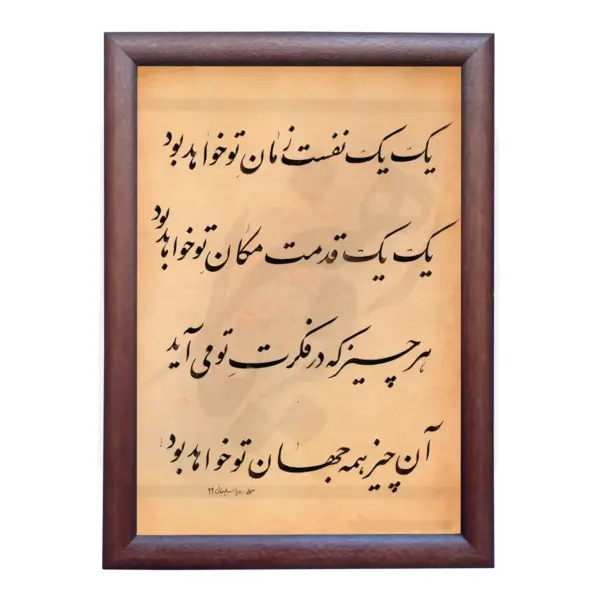 یک یک نفست زمان تو خواهد بود
یک یک قدمت مکان تو خواهد بود
هر چیز که در فکرت تو می آید
آن چیز همه جهان تو خواهد بود
سلیمانی ۹۹